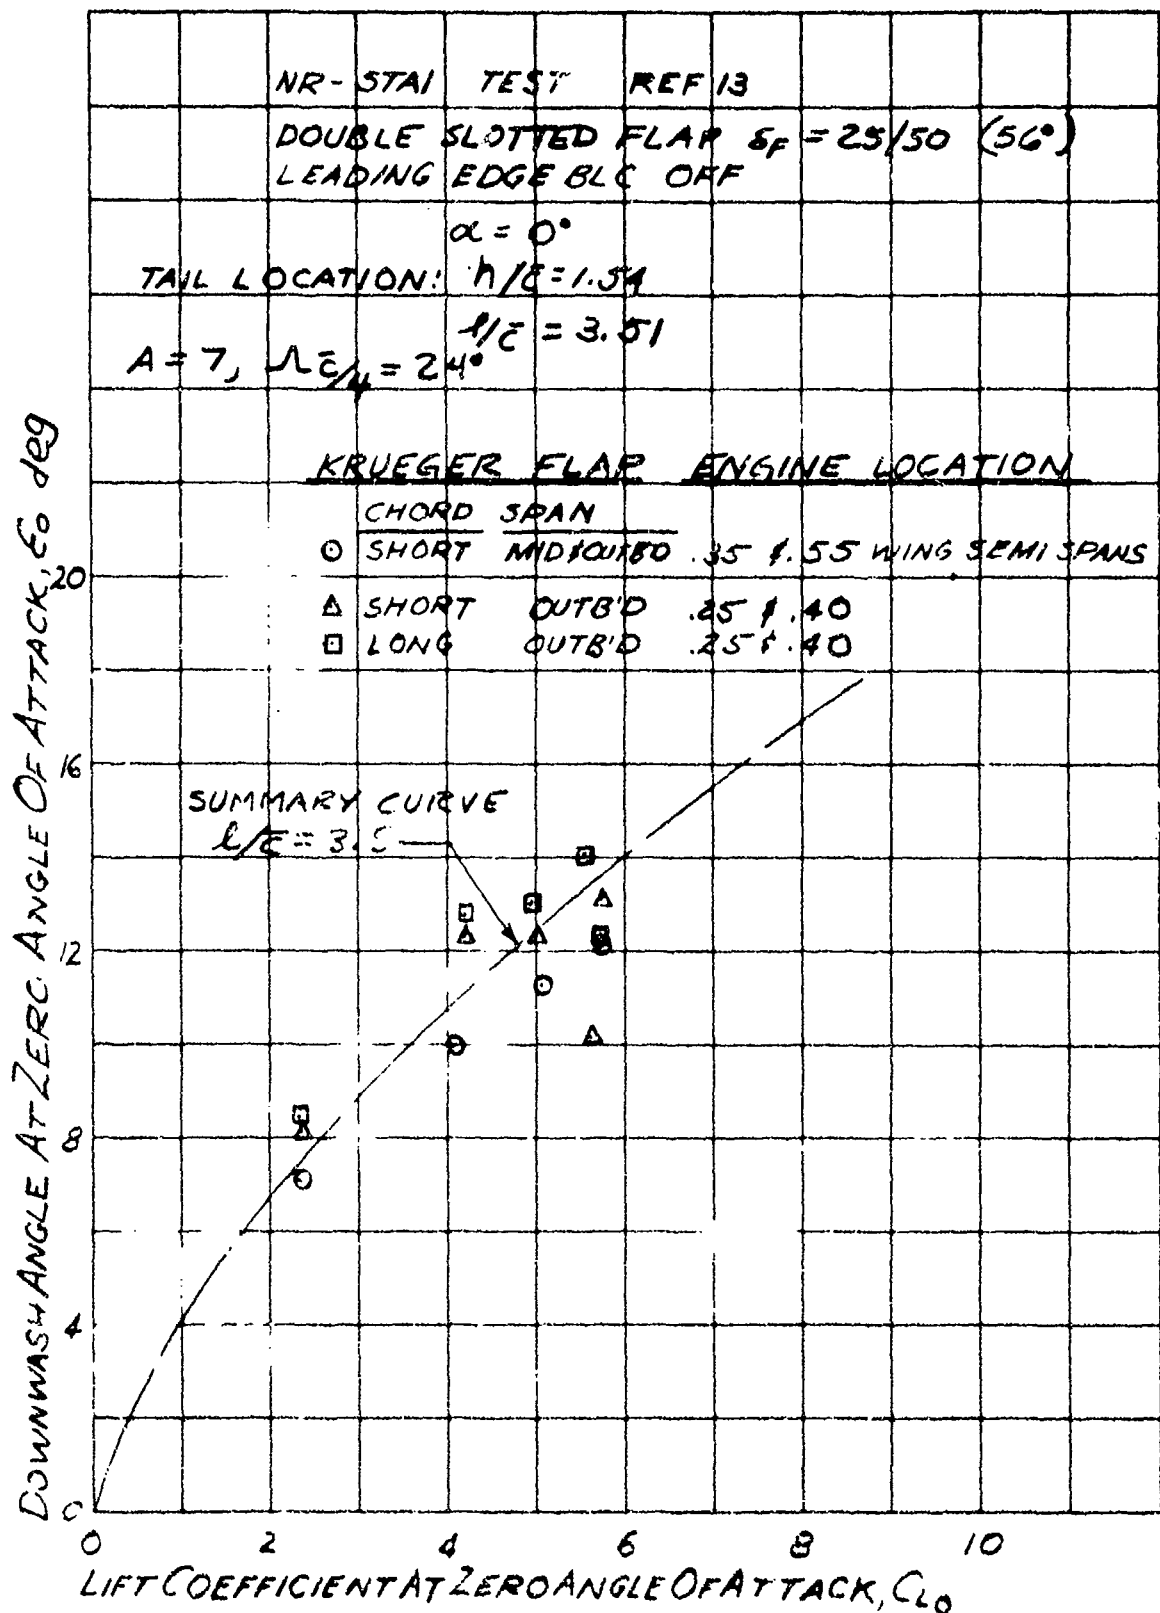 NR-STAI TEST REF 13
DOUBLE SLOTTED FLAP δF = 25/50 (56°)
LEADING EDGE BLC OFF
α = 0°
TAIL LOCATION: h/c̄ = 1.54
l/c̄ = 3.51
A = 7, Λc̄/4 = 24°
KRUEGER FLAP ENGINE LOCATION
CHORD SPAN
SHORT MID & OUTBD .35 & .55 WING SEMI SPANS
SHORT OUTB'D .25 & .40
LONG OUTB'D .25 & .40
SUMMARY CURVE
l/c̄ = 3.5
DOWNWASH ANGLE AT ZERO ANGLE OF ATTACK, ϵ0 deg
20
16
12
8
4
0
0 2 4 6 8 10
LIFT COEFFICIENT AT ZERO ANGLE OF ATTACK, CL0